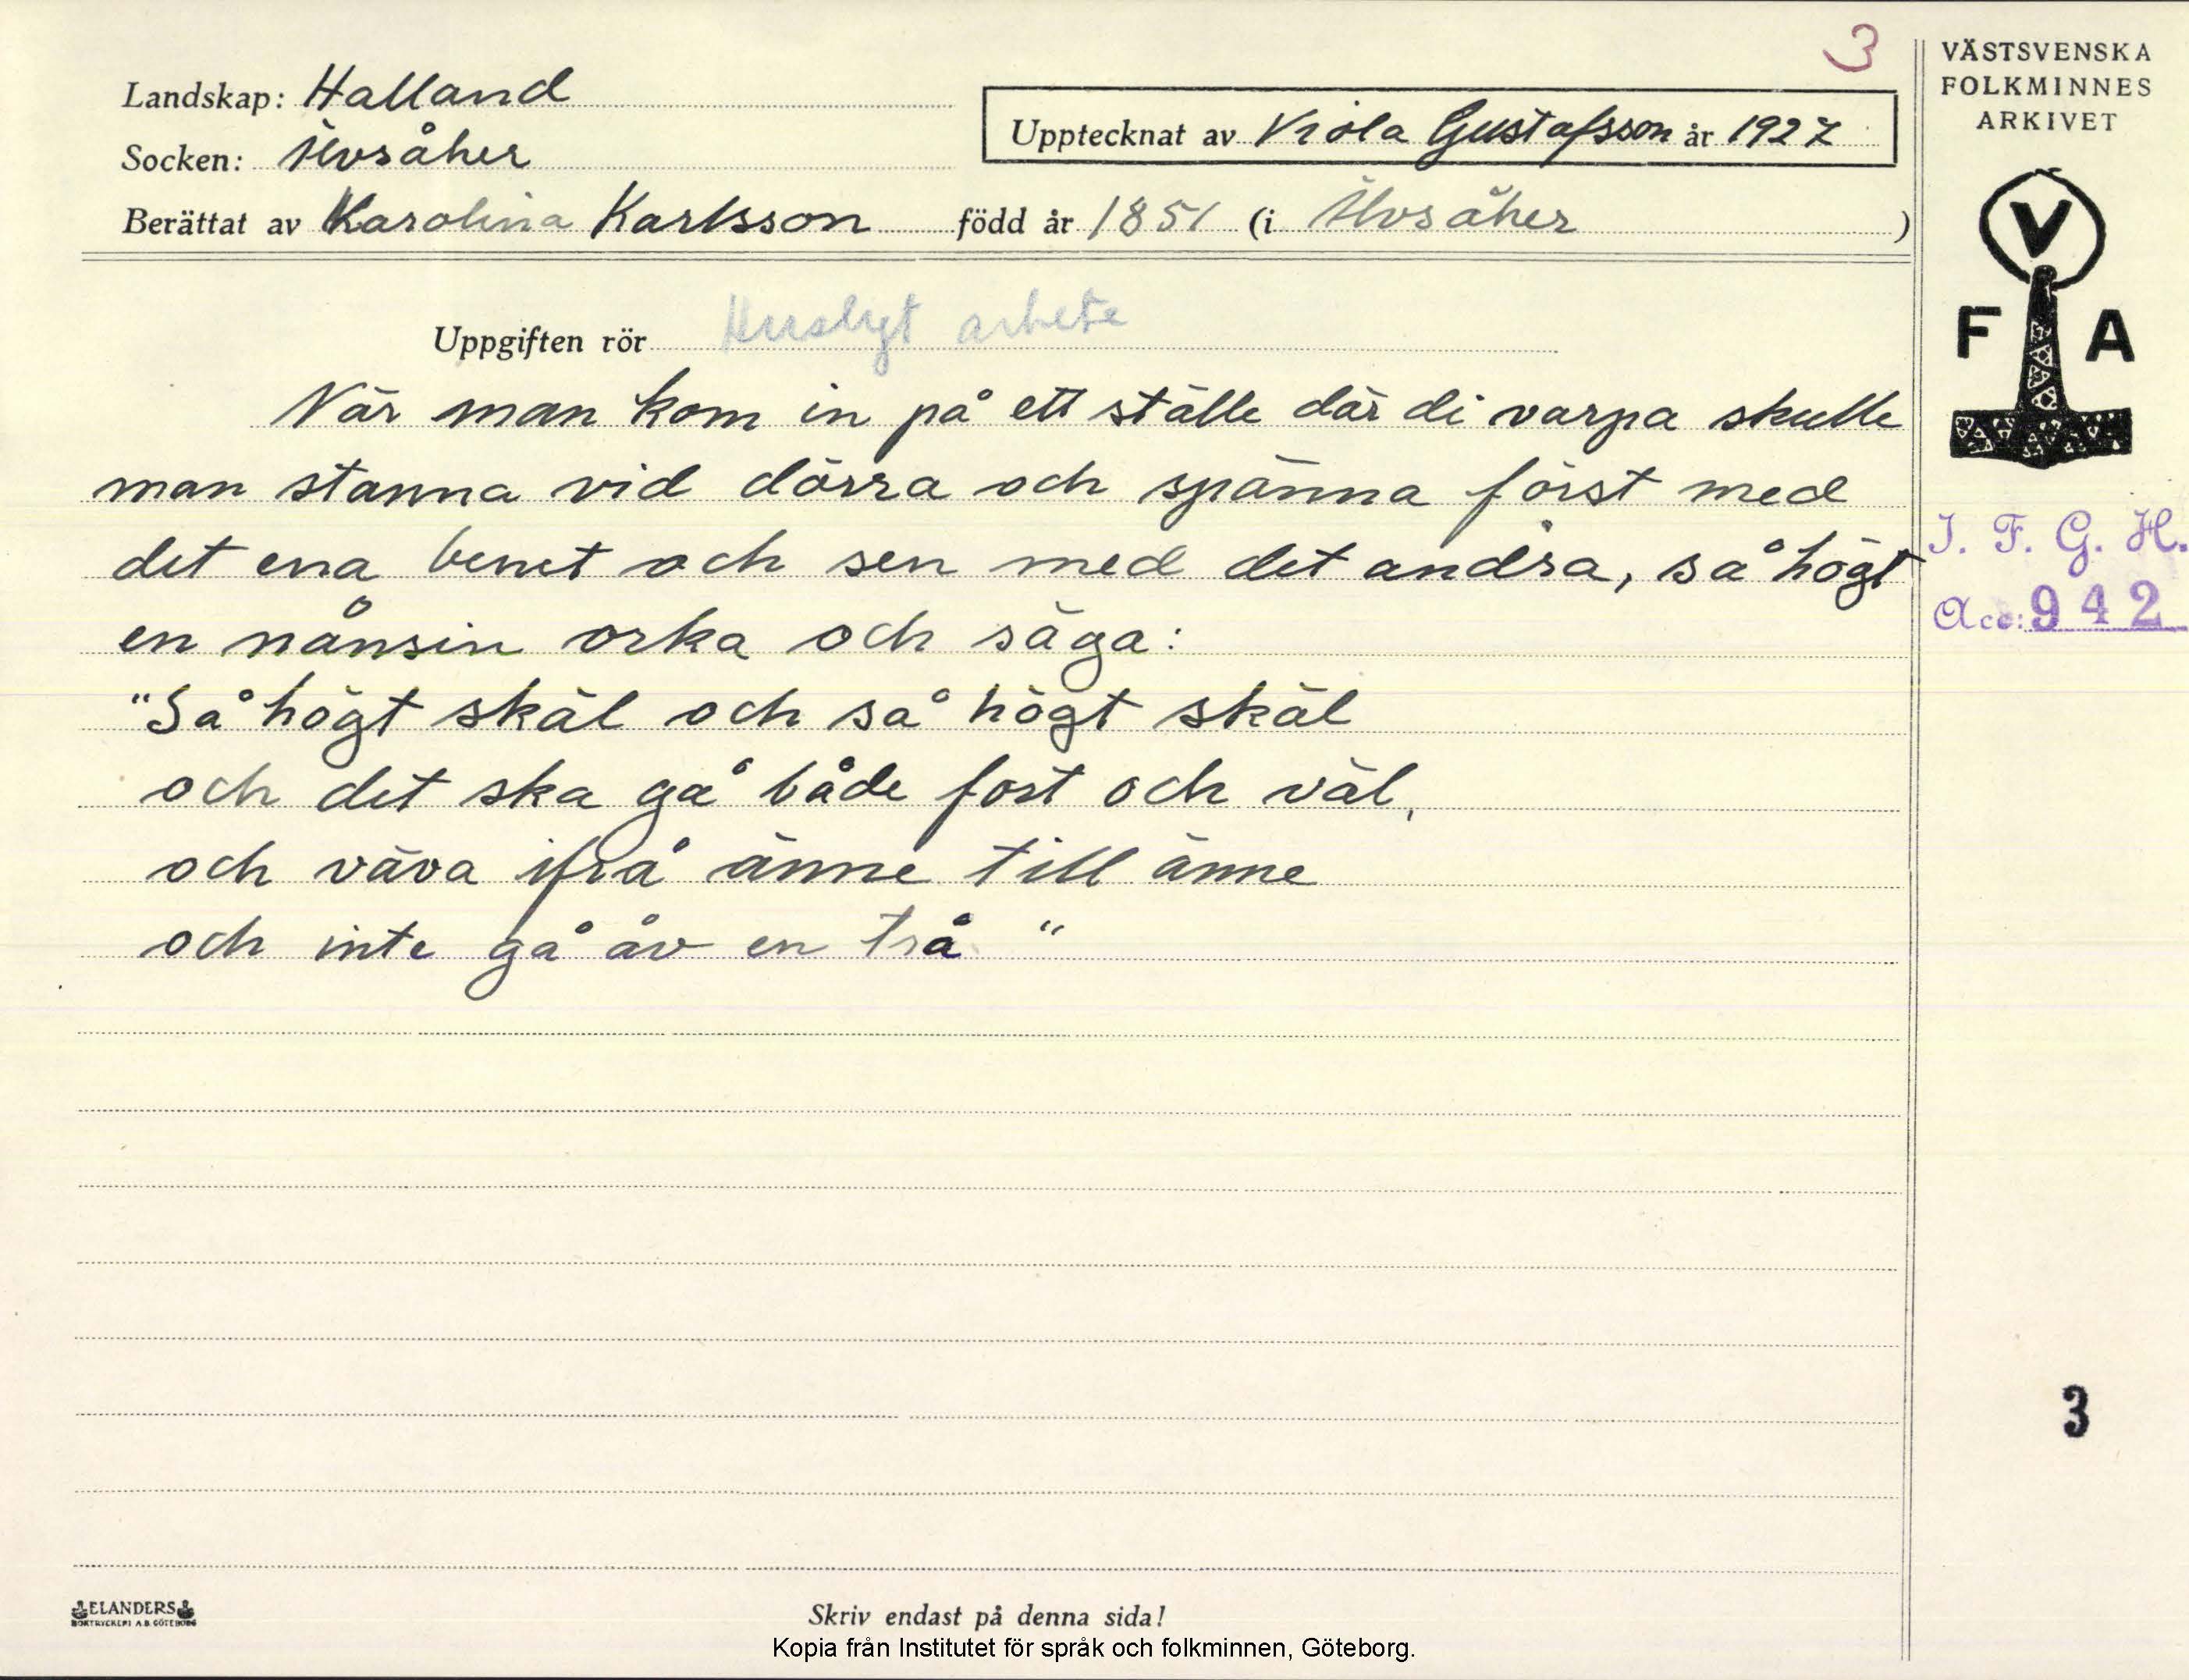 3
VÄSTSVENSKA
FOLKMINNES
ARKIVET
Landskap: Halland
Upptecknat av Viola Gustafsson år 1927
Socken: Älvsåker
Berättat av Karolina Karlsson född år 1851 (i Älvsåker )
V
F A
Uppgiften rör Husligt arbete
När man kom in på ett ställe där di varpa skulle
man stanna vid dörra och spänna först med
det ena benet och sen med det andra, så högt
en nånsin orka och säga:
"Så högt skäl och så högt skäl
och det ska gå både fort och väl,
och väva ifrå änne till änne
och inte gå åv en trå "
I. F. G. H.
Acc: 942
3
ELANDERS
BOKTRYCKERI A.B. GÖTEBORG
Skriv endast på denna sida!
Kopia från Institutet för språk och folkminnen, Göteborg.